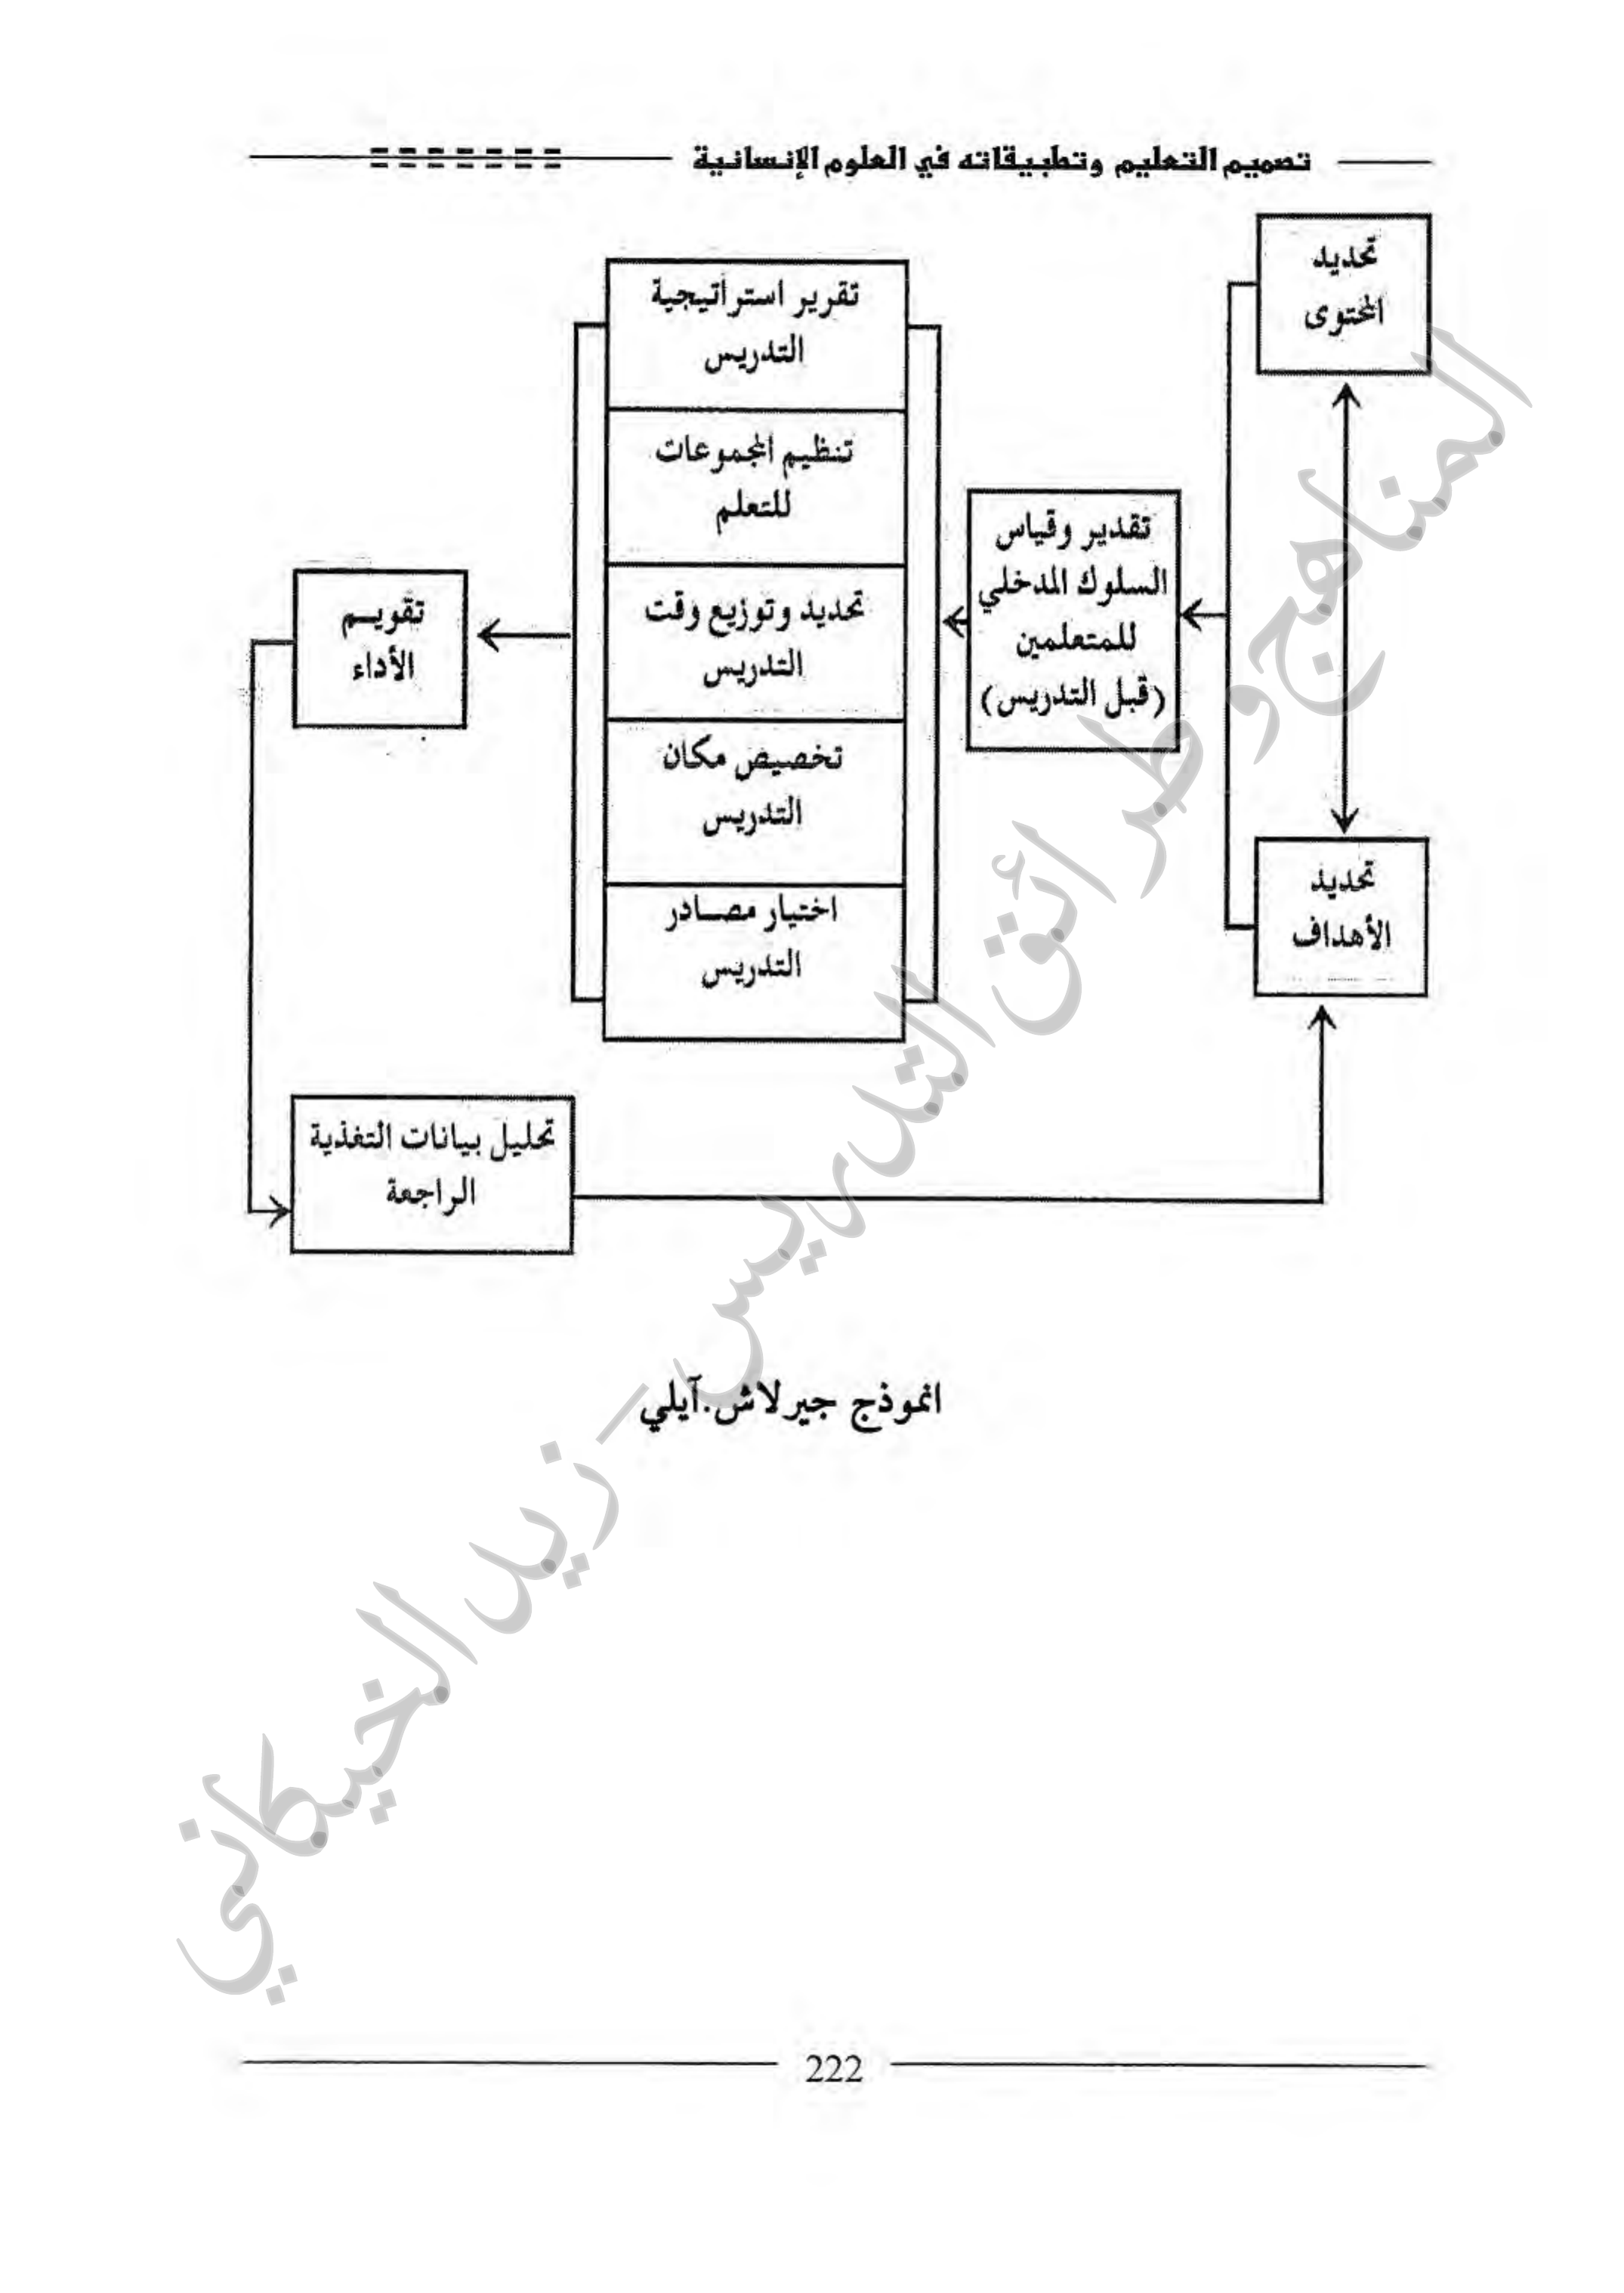 تصميم التعليم وتطبيقاته في العلوم الإنسانية
تحديد
المحتوى
تحديد
الأهداف
تقدير وقياس
السلوك المدخلي
للمتعلمين
(قبل التدريس)
تقرير استراتيجية
التدريس
تنظيم المجموعات
للتعلم
تحديد وتوزيع وقت
التدريس
تخصيص مكان
التدريس
اختيار مصادر
التدريس
تقويم
الأداء
تحليل بيانات التغذية
الراجعة
انموذج جيرلاش.آيلي
المناهج وطرائق التدريس - زيد الخيكاني
222